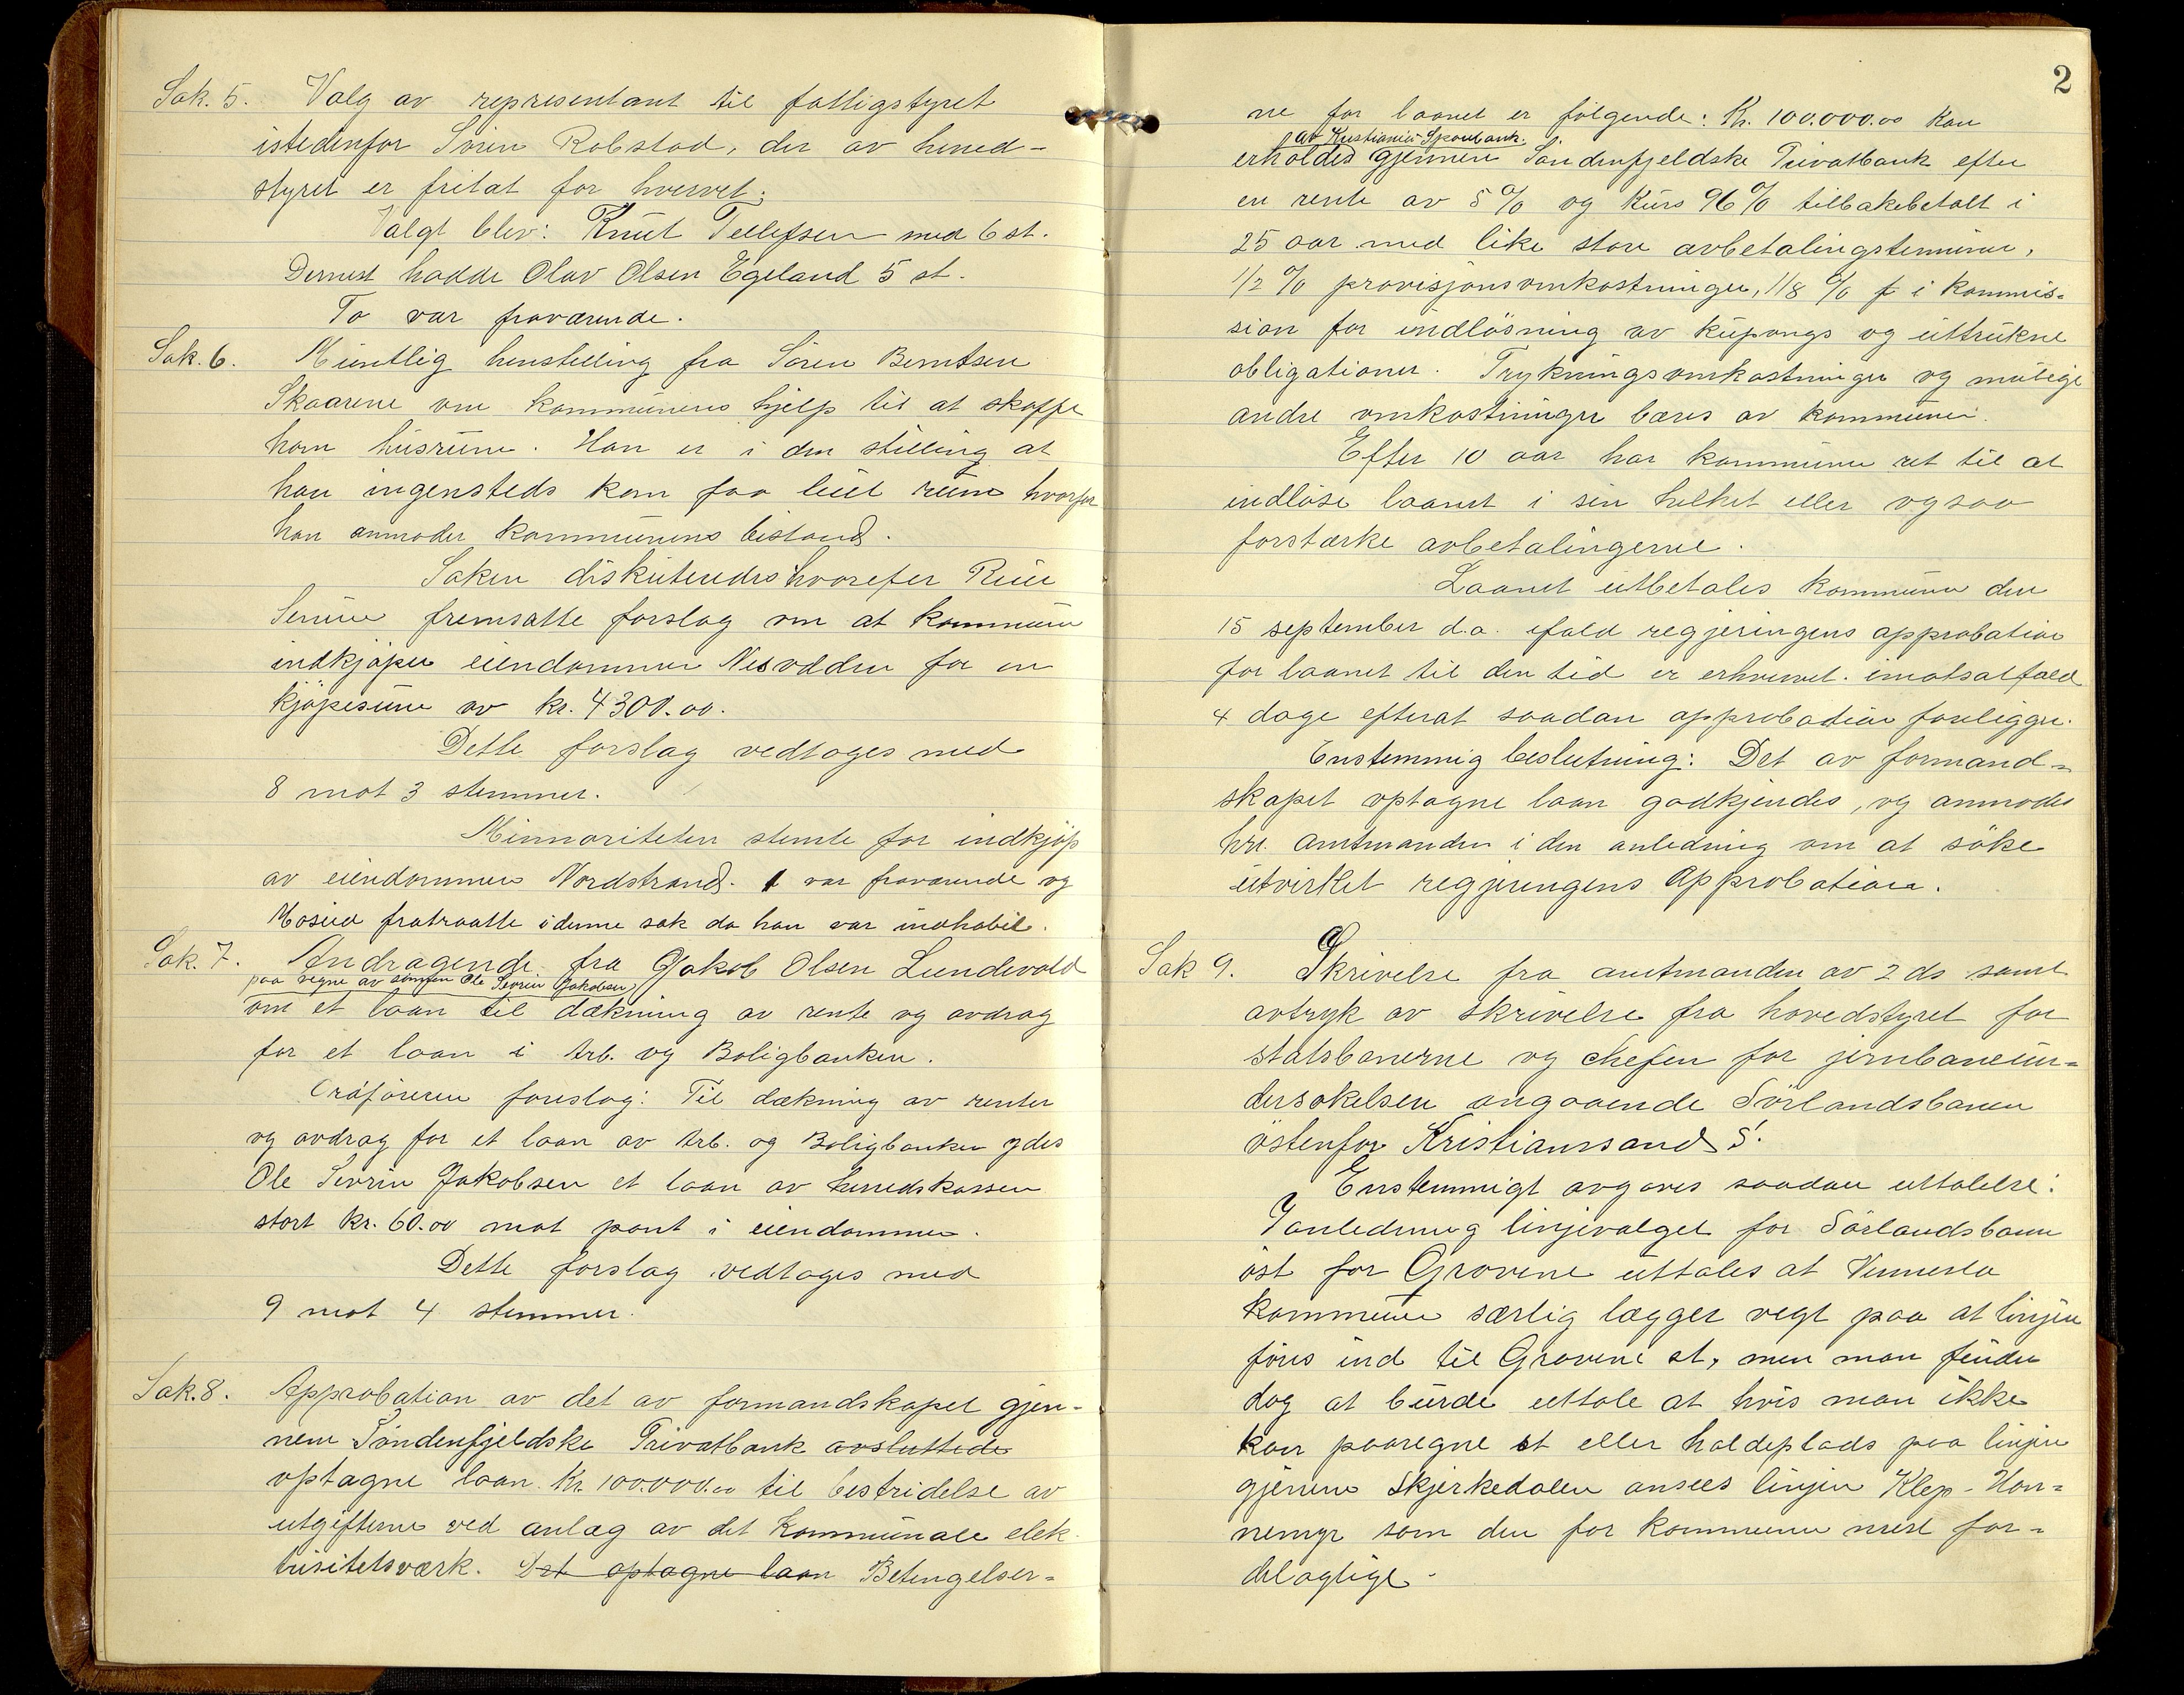 Sak. 5. Valg av representant til fattigstyret
istedenfor Sören Robstad, der av hered-
styret er fritat for hvervet.
Valgt blev: Knut Tellefsen med 6 st.
Dernest hadde Olav Olsen Egeland 5 st.
To var fraværende.
Sak. 6. Muntlig henstilling fra Sören Berntsen
Skaarene om kommunens hjelp til at skaffe
ham husrum. Han er i den stilling at
han ingensteds kan faa leiet rum hvorfor
han anmoder kommunens bistand.
Saken diskutertes hvorefter
fremsatte forslag om at kommunen
indkjöper eiendommen Nesodden for en
kjöpesum av kr. 4300.00.
Dette forslag vedtoges med
8 mot 3 stemmer.
Minnoriteten stemte for indkjöp
av eiendommen Nordstrand. 1 var fraværende og
Moseid fratraatte i denne sak da han var inhabil.
Sak. 7. Andragende fra Jakob Olsen Lundevold
paa vegne av sønnen Ole Severin Jakobsen
om et laan til dækning av rente og avdrag
for et laan i Arb. og Boligbanken.
Ordförerens forslag: Til dækning av renter
og avdrag for et laan av Arb. og Boligbanken ydes
Ole Severin Jakobsen et laan av herredskassen
stort kr. 60.00 mot pant i eiendommen.
Dette forslag vedtoges med
9 mot 4 stemmer.
Sak. 8. Approbation av det av formandskapet gjen-
nem Söndenfjeldske Privatbank avsluttede
optagne laan Kr. 100.000.00 til bestridelse av
utgifterne ved anlæg av det kommunale elek-
trisitetsværk. Det optagne laan Betingelser-
2
ne for laanet er følgende: Kr. 100.000.00 kan
av Kristiania Sparebank.
erholdes gjennem Söndenfjeldske Privatbank efter
en rente av 5 % og Kurs 96 % tilbakebetalt i
25 aar med like store avbetalingsterminer,
1/2 % provisjonsomkostninger, 1/8 % i kommis-
sion for indlösning av kupongs og uttrukne
obligationer. Trykningsomkostninger og mulige
andre omkostninger bæres av kommunen.
Efter 10 aar har kommunen ret til at
indlöse laanet i sin helhet eller ogsaa
forstærke avbetalingerne.
Laanet utbetales kommunen den
15 september d.a. ifald regjeringens approbation
for laanet til den tid er erhvervet. imotsatfald
4 dage efterat saadan approbation foreligger.
Enstemmig beslutning: Det av formand-
skapet optagne laan godkjendes, og anmodes
hr. amtmanden i den anledning om at söke
utvirket regjeringens Approbation.
Sak 9. Skrivelse fra amtmanden av 2 ds samt
avtryk av skrivelse fra hovedstyret for
statsbanerne og chefen for jernbaneun-
dersøkelsen angaaende Sörlandsbanen
östenfor Kristianssand S.
Enstemmigt avgaves saadan uttalelse:
I anledning linjevalget for Sörlandsbanen
öst for Grovene uttales at Vennesla
kommune særlig lægger vegt paa at linjen
föres ind til Grovene st, men man finder
dog at burde uttale at hvis man ikke
kan paaregne st eller holdeplads paa linjen
gjennem Skjerkedalen ansees linjen Klep-Hon-
nemyr som den for kommunen mest for-
delagtige.